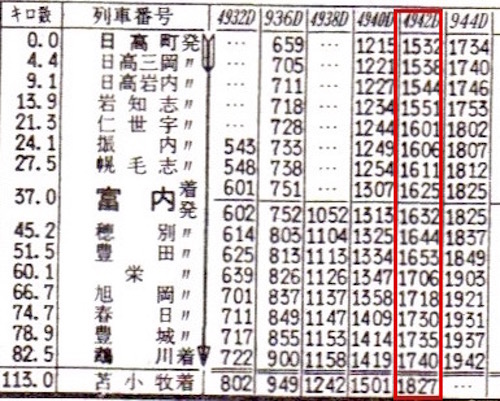 キロ数 列車番号 4932D 936D 4938D 4940D 4942D 944D
0.0 日高町発 … 659 … 1215 1532 1734
4.4 日高三岡〃 … 705 … 1221 1538 1740
9.1 日高岩内〃 … 711 … 1227 1544 1746
13.9 岩知志〃 … 718 … 1234 1551 1753
21.3 仁世宇〃 … 728 … 1244 1601 1802
24.1 振内〃 543 733 … 1249 1606 1807
27.5 幌毛志〃 548 738 … 1254 1611 1812
37.0 富内着 601 751 … 1307 1625 1825
発 602 752 1052 1313 1632 1825
45.2 穂別〃 614 803 1104 1325 1644 1837
51.5 豊田〃 625 813 1113 1334 1653 1849
60.1 栄〃 639 826 1126 1347 1706 1903
66.7 旭岡〃 701 837 1137 1358 1718 1921
74.7 春日〃 711 849 1147 1409 1730 1931
78.9 豊城〃 717 855 1153 1414 1735 1937
82.5 鵡川着 722 900 1158 1419 1740 1942
113.0 苫小牧着 802 949 1242 1501 1827 …